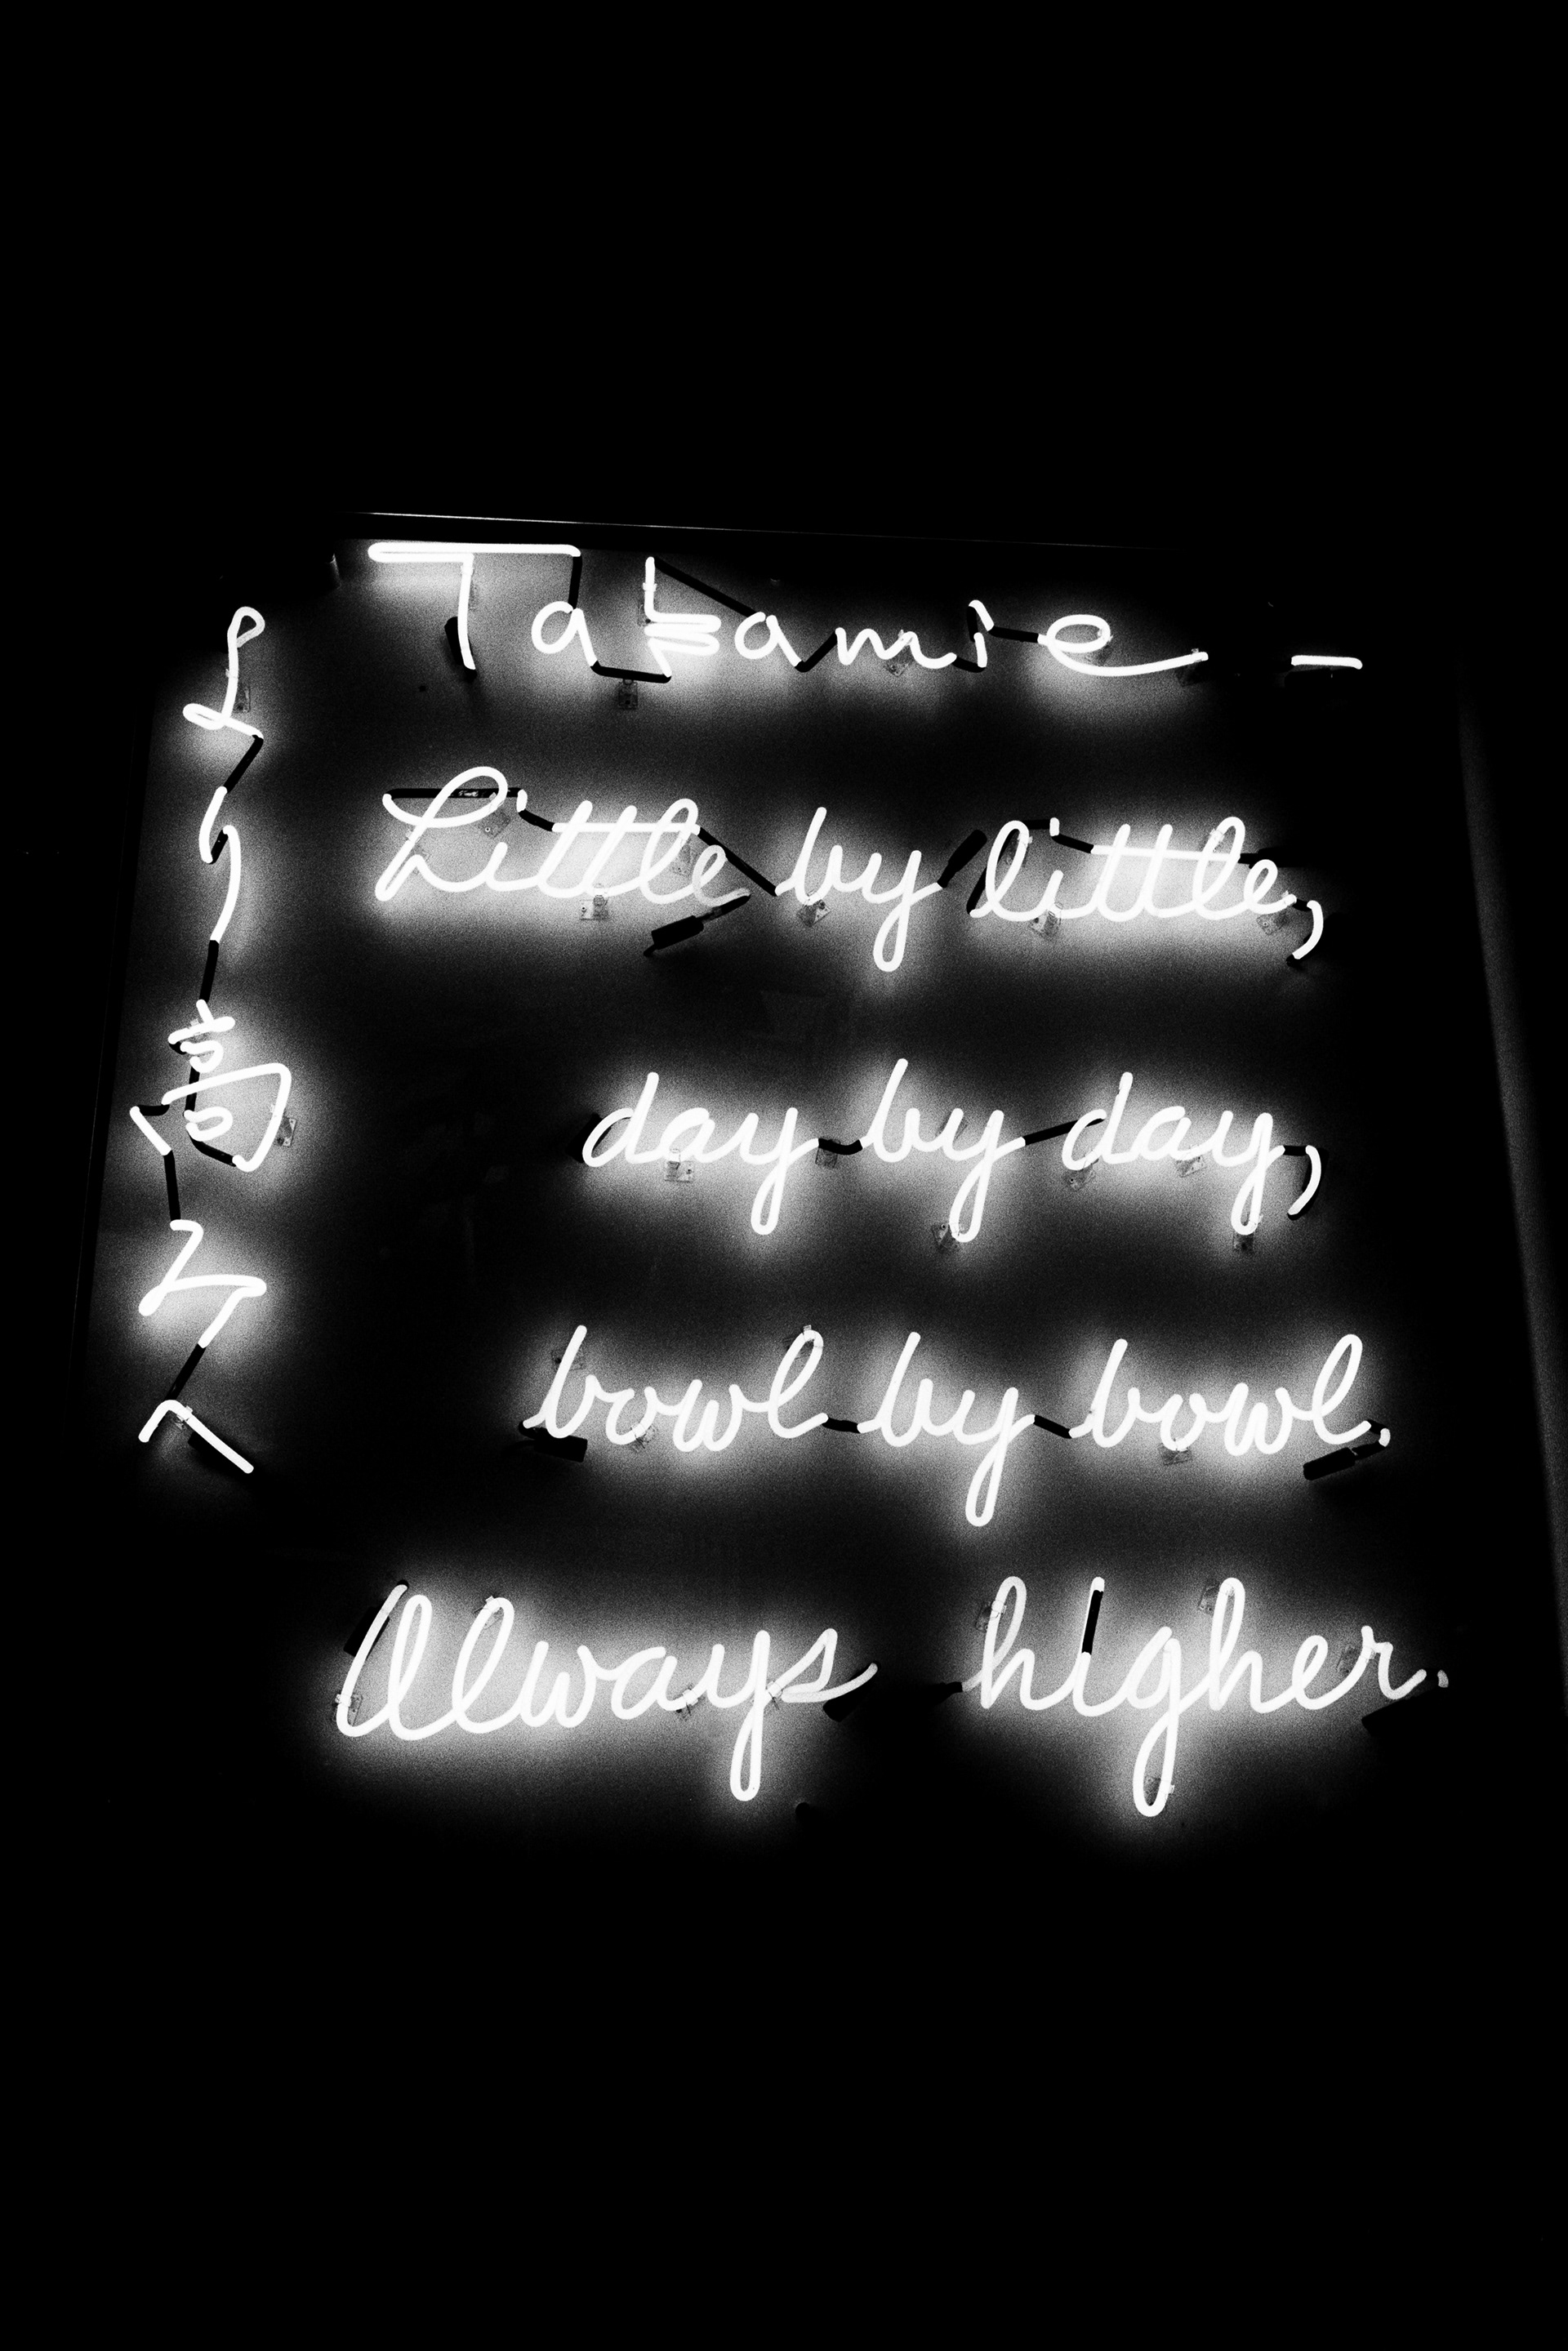 より高みへ
Takamie -
Little by little,
day by day,
bowl by bowl.
Always higher.